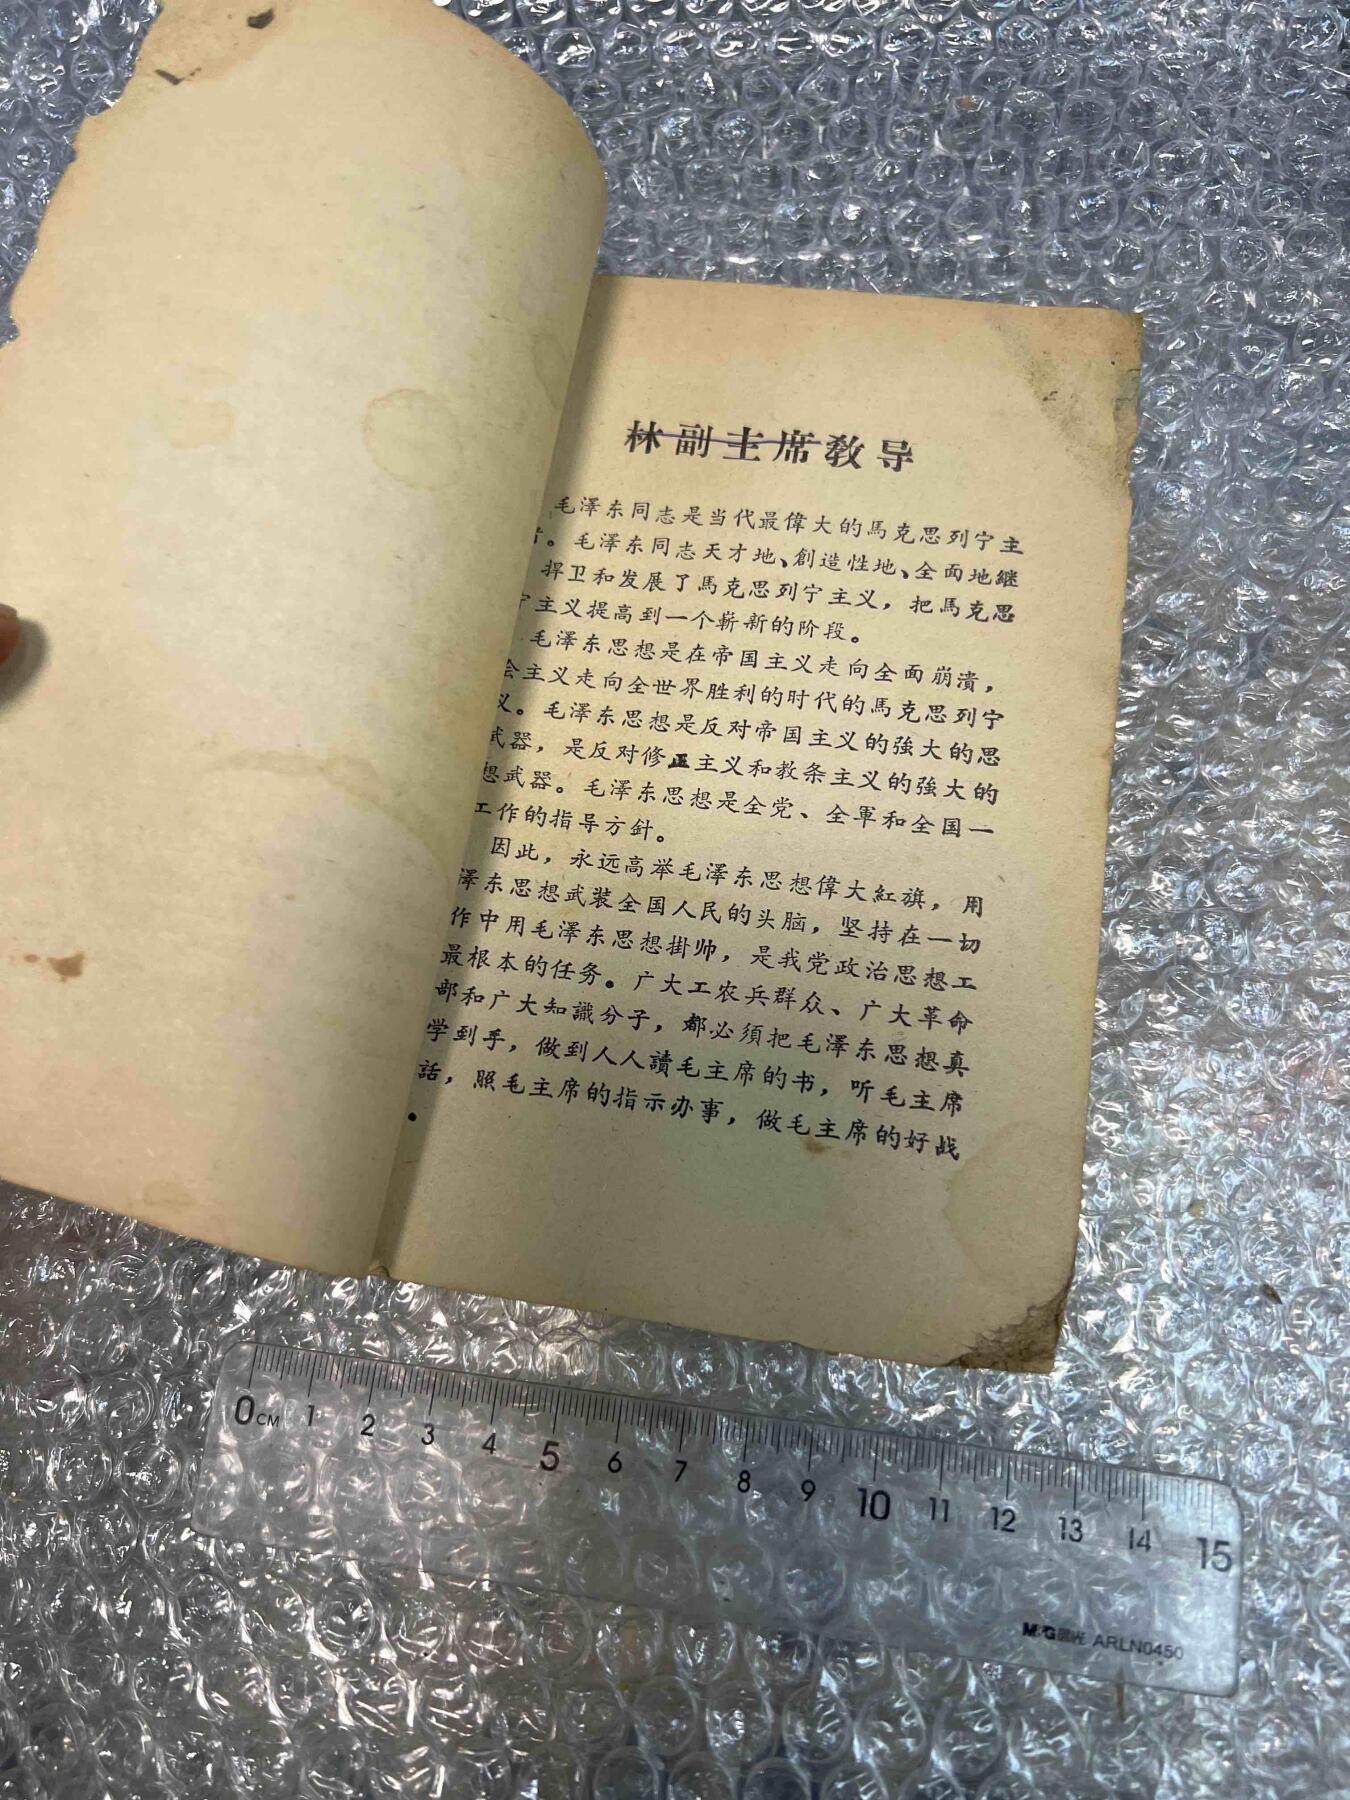 林副主席敎导
毛澤东同志是当代最偉大的馬克思列宁主
者。毛澤东同志天才地、創造性地、全面地継
捍卫和发展了馬克思列宁主义，把馬克思
宁主义提高到一个嶄新的阶段。
毛澤东思想是在帝国主义走向全面崩潰，
会主义走向全世界胜利的时代的馬克思列宁
义。毛澤东思想是反对帝国主义的強大的思
武器，是反对修正主义和教条主义的強大的
想武器。毛澤东思想是全党、全軍和全国一
工作的指导方針。
因此，永远高举毛澤东思想偉大紅旗，用
澤东思想武装全国人民的头脑，坚持在一切
作中用毛澤东思想掛帅，是我党政治思想工
最根本的任务。广大工农兵群众、广大革命
部和广大知識分子，都必須把毛澤东思想真
学到手，做到人人讀毛主席的书，听毛主席
話，照毛主席的指示办事，做毛主席的好战
。
0CM 1 2 3 4 5 6 7 8 9 10 11 12 13 14 15
M&G晨光 ARLN0450